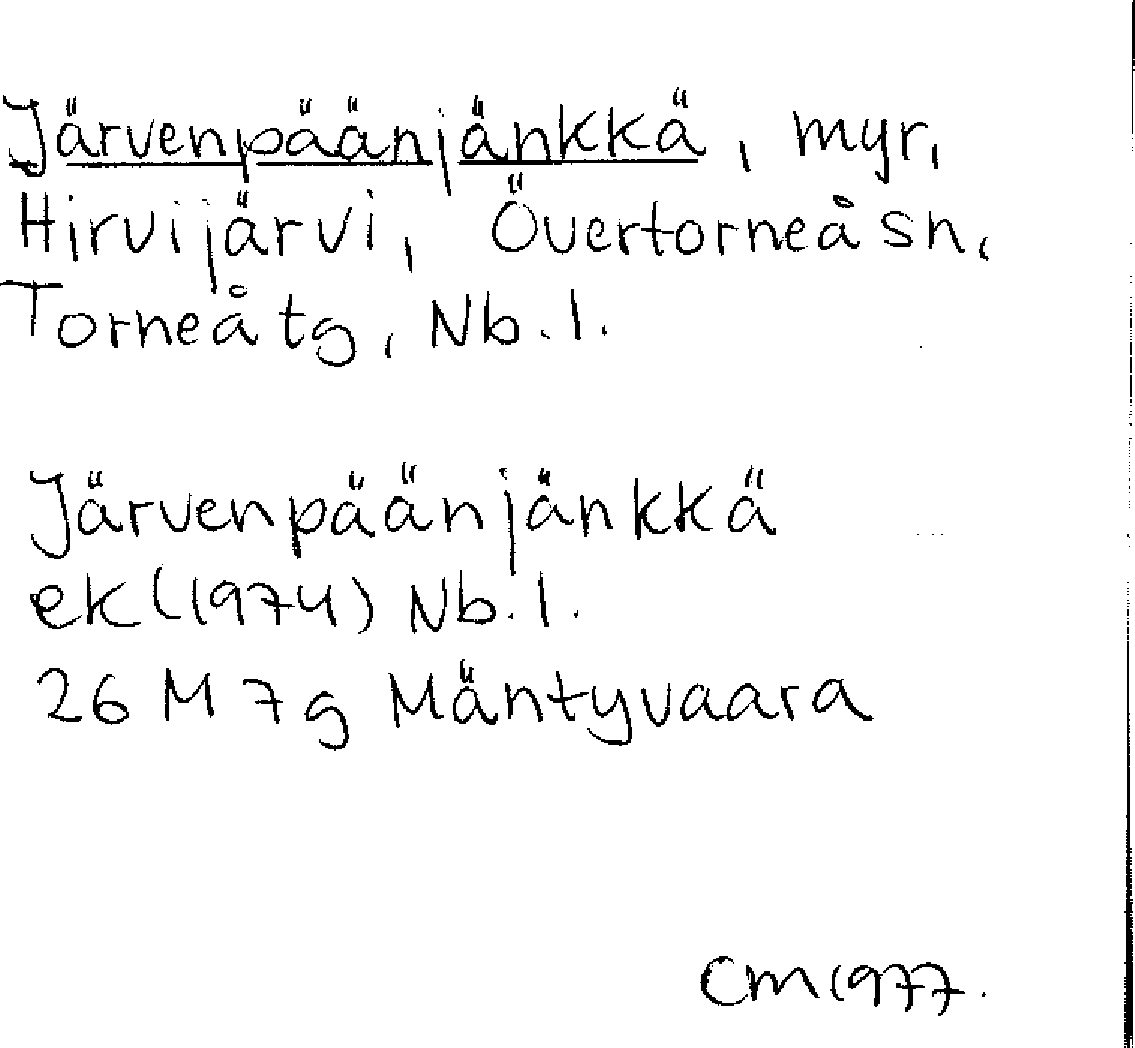 Järvenpäänjänkkä, myr,
Hirvijärvi, Övertorneå sn,
Torneå tg, Nb. l.
Järvenpäänjänkkä
ek (1974) Nb. l.
26 M 7g Mäntyvaara
CM 1977.